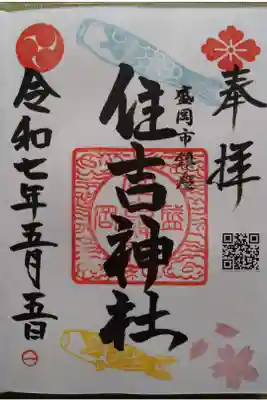 奉拝
盛岡市鎮座
住吉神社
令和七年五月五日